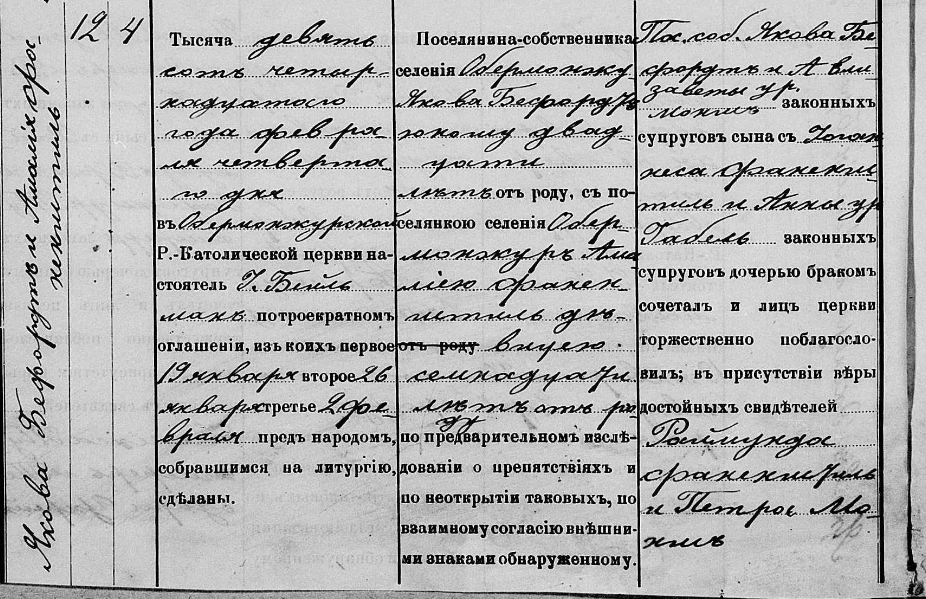 Якова Бефортъ и Амалія Франкенштиль
12
4
Тысяча девять
сотъ четыр-
надцатого
года февра
ля четверта
го дня
въ Обермонжурской
Р.-Католической церкви на-
стоятель І. Бейль
манъ по троекратномъ
оглашеніи, изъ коихъ первое
19 января второе 26
января третье 2 фе-
враля предъ народомъ,
собравшимся на литургію,
сдѣланы.
Поселянина-собственника
селенія Обермонжу
Якова Бефордтъ
юношу двад
цати
лѣтъ отъ роду, съ по-
селянкою селенія Обер
монжуръ Ама
ліею Франкен-
штиль дѣ-
отъ роду вицею
семнадцати
лѣтъ отъ ро
ду
по предварительномъ изслѣ-
дованіи о препятствіяхъ и
по неоткрытіи таковыхъ, по
взаимному согласію внѣшни-
ми знаками обнаруженному.
Пос. соб. Якова Бе-
фордтъ и Ели
заветы ур.
Мокишъ законныхъ
супруговъ сына съ Іоган
неса Франкенш
тиль и Анны ур
Габель законныхъ
супруговъ дочерью бракомъ
сочеталъ и лицѣ церкви
торжественно поблагосло-
вилъ; въ присутствіи вѣры
достойныхъ свидѣтелей
Раймунда
Франкенштиль
и Петрос Мо-